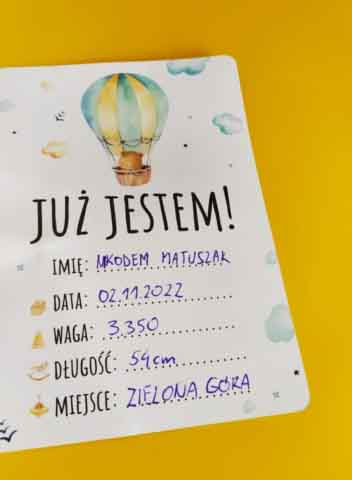 JUŻ JESTEM!
IMIĘ: NIKODEM MATUSZAK
DATA: 02.11.2022
WAGA: 3.350
DŁUGOŚĆ: 54cm
MIEJSCE: ZIELONA GÓRA